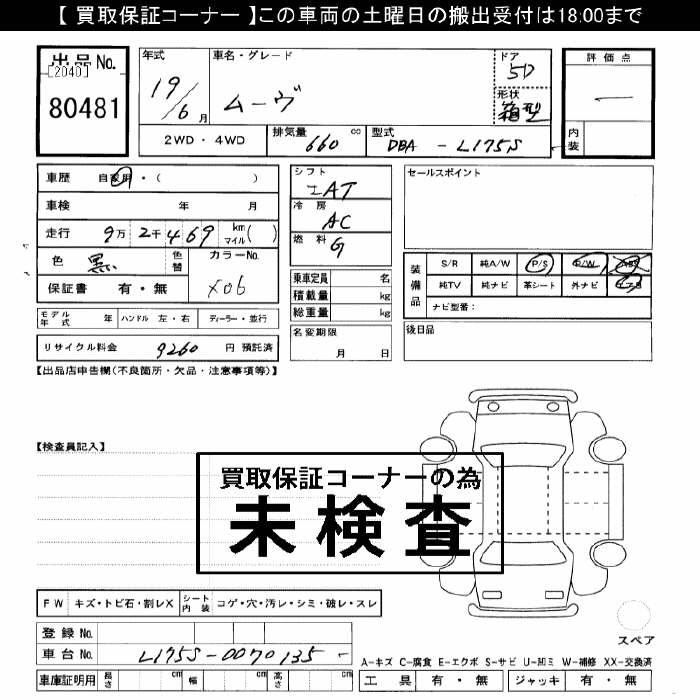 【 買取保証コーナー 】この車両の土曜日の搬出受付は18:00まで
出品No.
[2040]
80481
年式 車名・グレード ドア
19/6月 ムーヴ 5D
形状
箱型
2WD・4WD 排気量 660 cc 型式 DBA - L175S
評価点
一
内装
車歴 自家用・( )
車検 年 月
走行 9万2千469 km マイル( )
色 黒 色替 カラーNo.
X06
保証書 有・無
シフト
IAT
冷房
AC
燃料 G
乗車定員 名
積載量 kg
総重量 kg
セールスポイント
装備品 S/R 純A/W P/S P/W ABS
純TV 純ナビ 革シート 外ナビ エアB
ナビ型番:
モデル年式 年 ハンドル 左・右 ディーラー・並行
名変期限
月 日
後日品
リサイクル料金 9260 円 預託済
【出品店申告欄(不良箇所・欠品・注意事項等)】
【検査員記入】
買取保証コーナーの為
未検査
FW キズ・トビ石・割レX シート内装 コゲ・穴・汚レ・シミ・破レ・スレ
登録No.
車台No. L175S-0070135 -
車庫証明用 長さ cm 幅 cm 高さ cm
スペア
A-キズ C-腐食 E-エクボ S-サビ U-凹ミ W-補修 XX-交換済
工具 有・無 ジャッキ 有・無